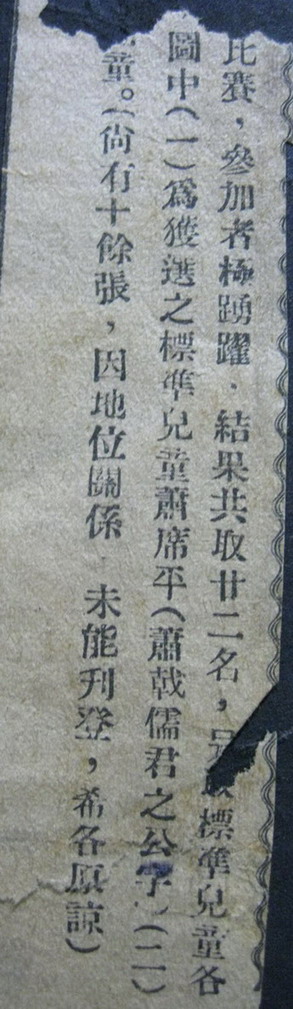 比賽，參加者極踴躍．結果共取廿二名，標準兒童各
圖中（一）為獲選之標準兒童蕭席平（蕭戟儒君之公子）（二）
童。（尙有十餘張，因地位關係　未能刋登，希各原諒）